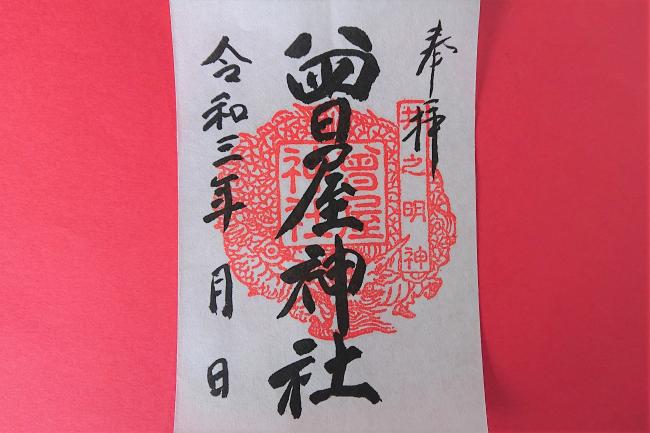 奉拝
井之明神
曾屋神社
曾屋
神社
令和三年 月 日